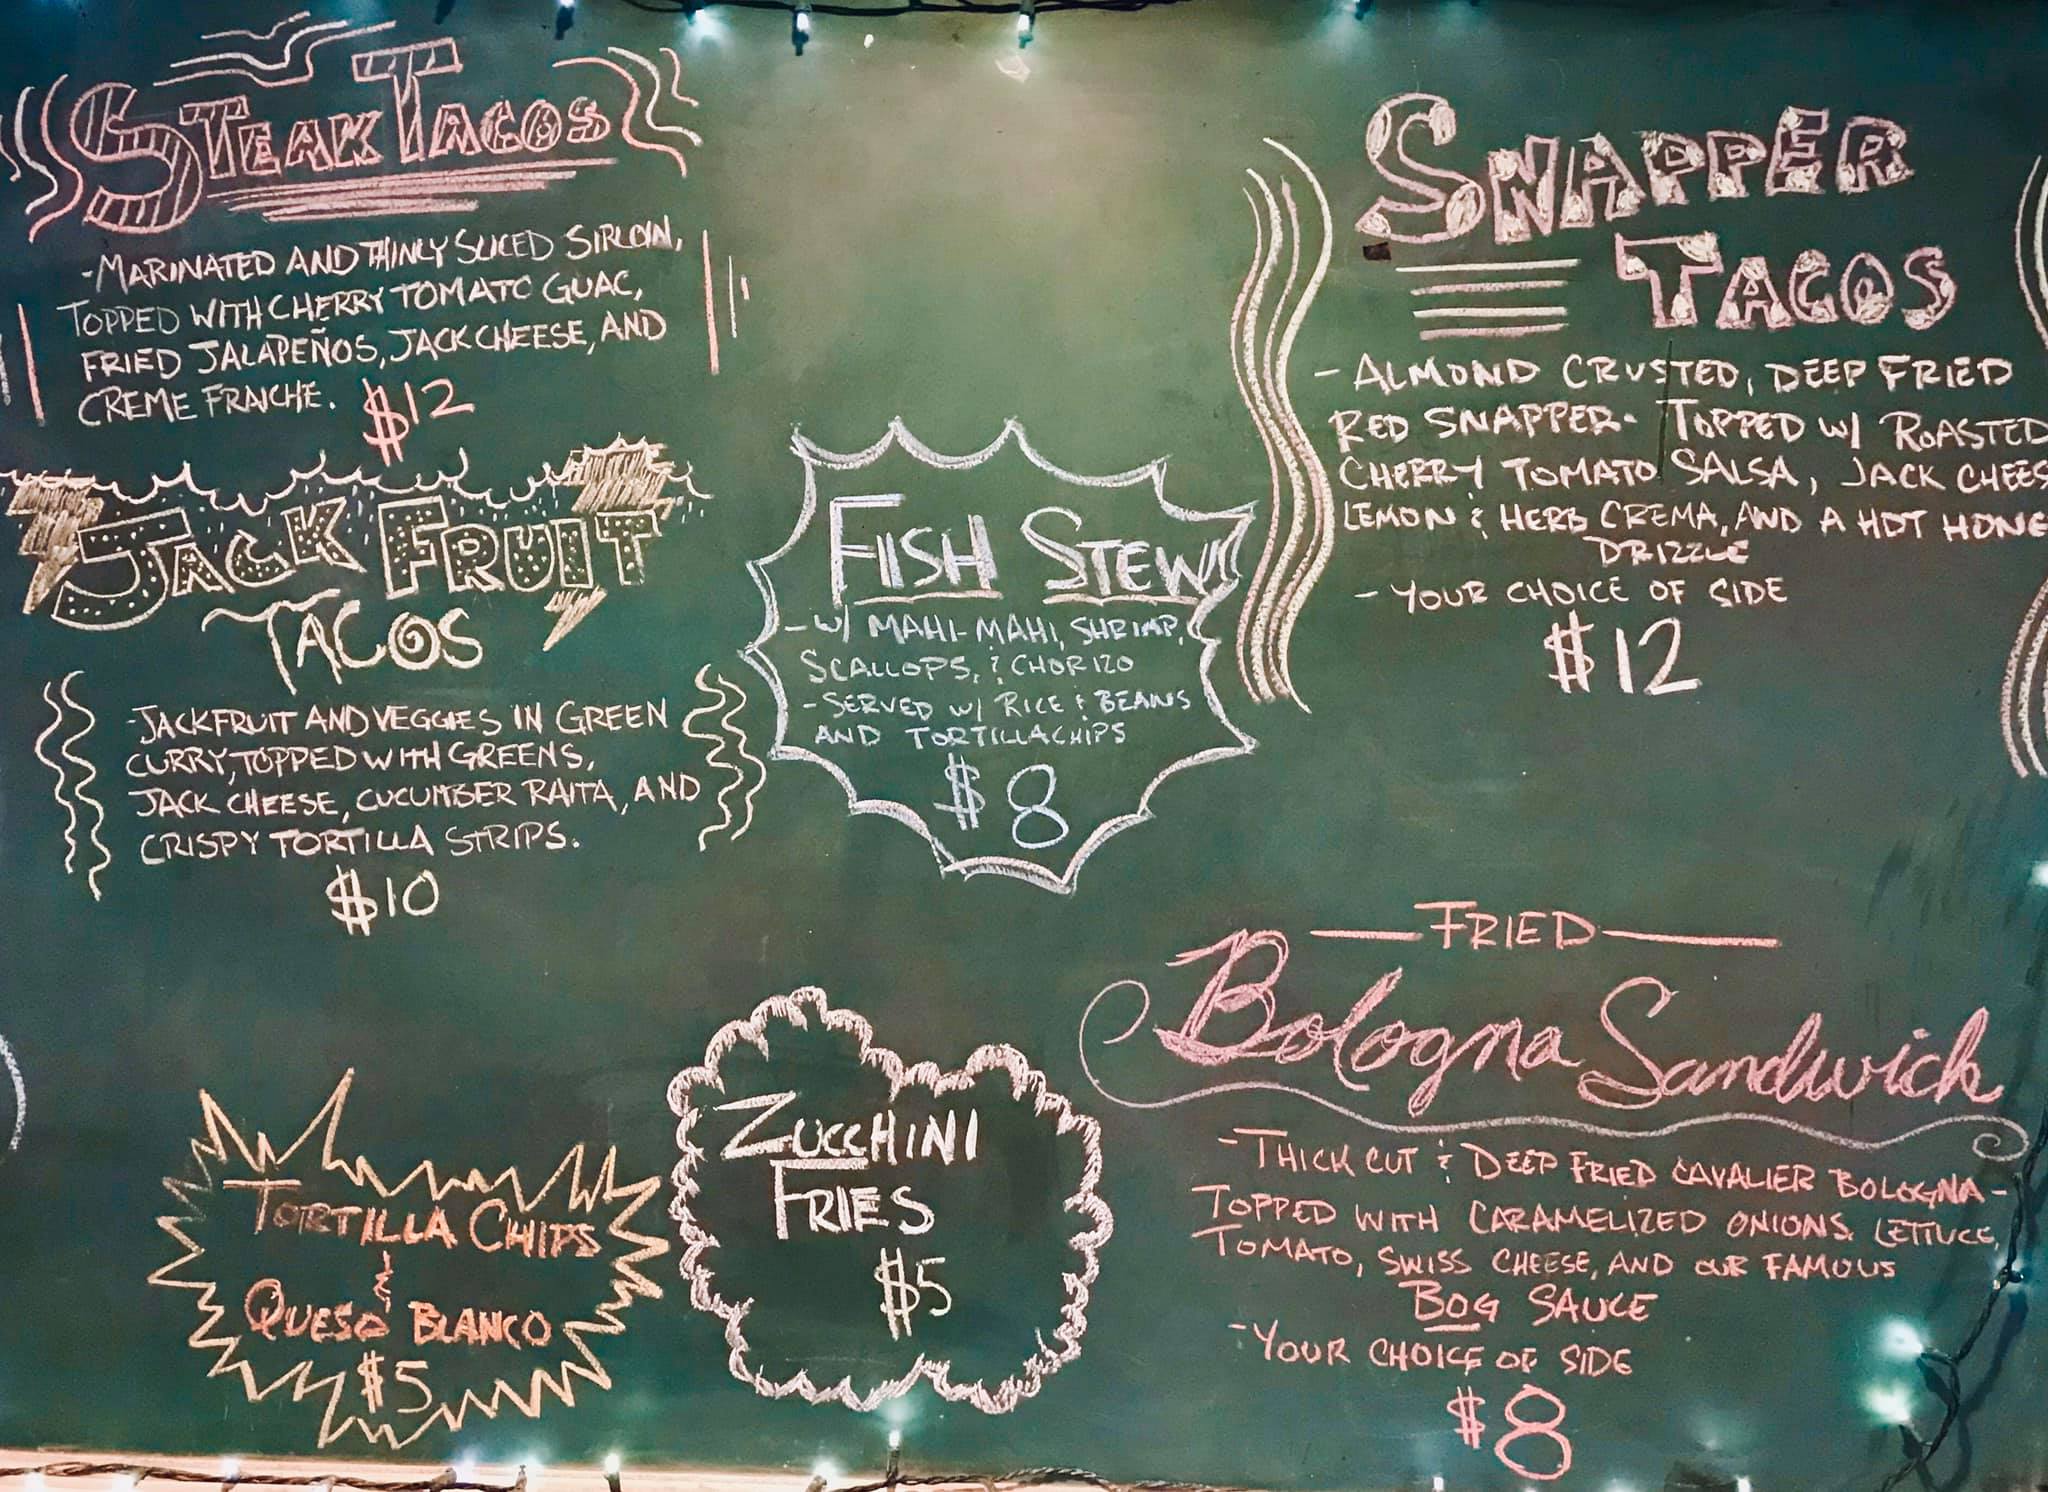 STEAK TACOS
-MARINATED AND THINLY SLICED SIRLOIN,
TOPPED WITH CHERRY TOMATO GUAC,
FRIED JALAPEÑOS, JACK CHEESE, AND
CREME FRAICHE. $12
JACK FRUIT
TACOS
-JACKFRUIT AND VEGGIES IN GREEN
CURRY, TOPPED WITH GREENS,
JACK CHEESE, CUCUMBER RAITA, AND
CRISPY TORTILLA STRIPS.
$10
FISH STEW
-W/ MAHI-MAHI, SHRIMP,
SCALLOPS, & CHORIZO
-SERVED W/ RICE & BEANS
AND TORTILLA CHIPS
$8
SNAPPER
TACOS
-ALMOND CRUSTED, DEEP FRIED
RED SNAPPER- TOPPED W/ ROASTED
CHERRY TOMATO SALSA, JACK CHEES
LEMON & HERB CREMA, AND A HOT HONE
DRIZZLE
-YOUR CHOICE OF SIDE
$12
TORTILLA CHIPS
&
QUESO BLANCO
$5
ZUCCHINI
FRIES
$5
FRIED
Bologna Sandwich
-THICK CUT & DEEP FRIED CAVALIER BOLOGNA-
TOPPED WITH CARAMELIZED ONIONS, LETTUCE,
TOMATO, SWISS CHEESE, AND OUR FAMOUS
BOG SAUCE
-YOUR CHOICE OF SIDE
$8